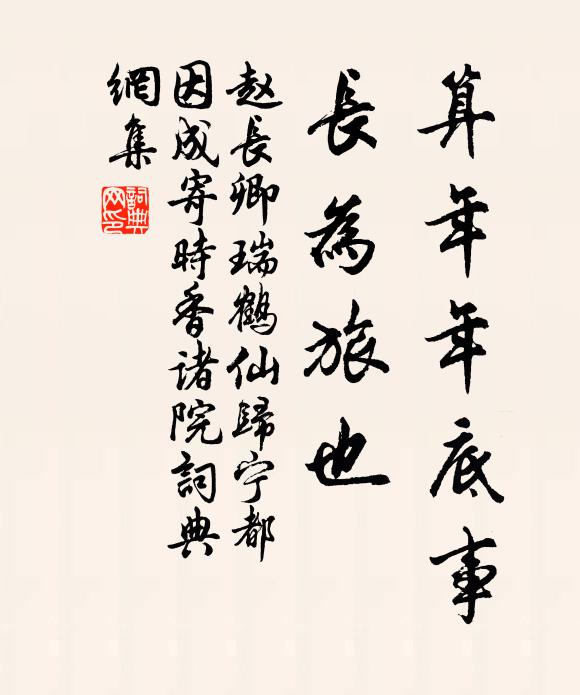 算年年底事
長為旅也
赵長卿瑞鶴仙歸宁都
因成寄時香诸院詞典
網集
詞典網印